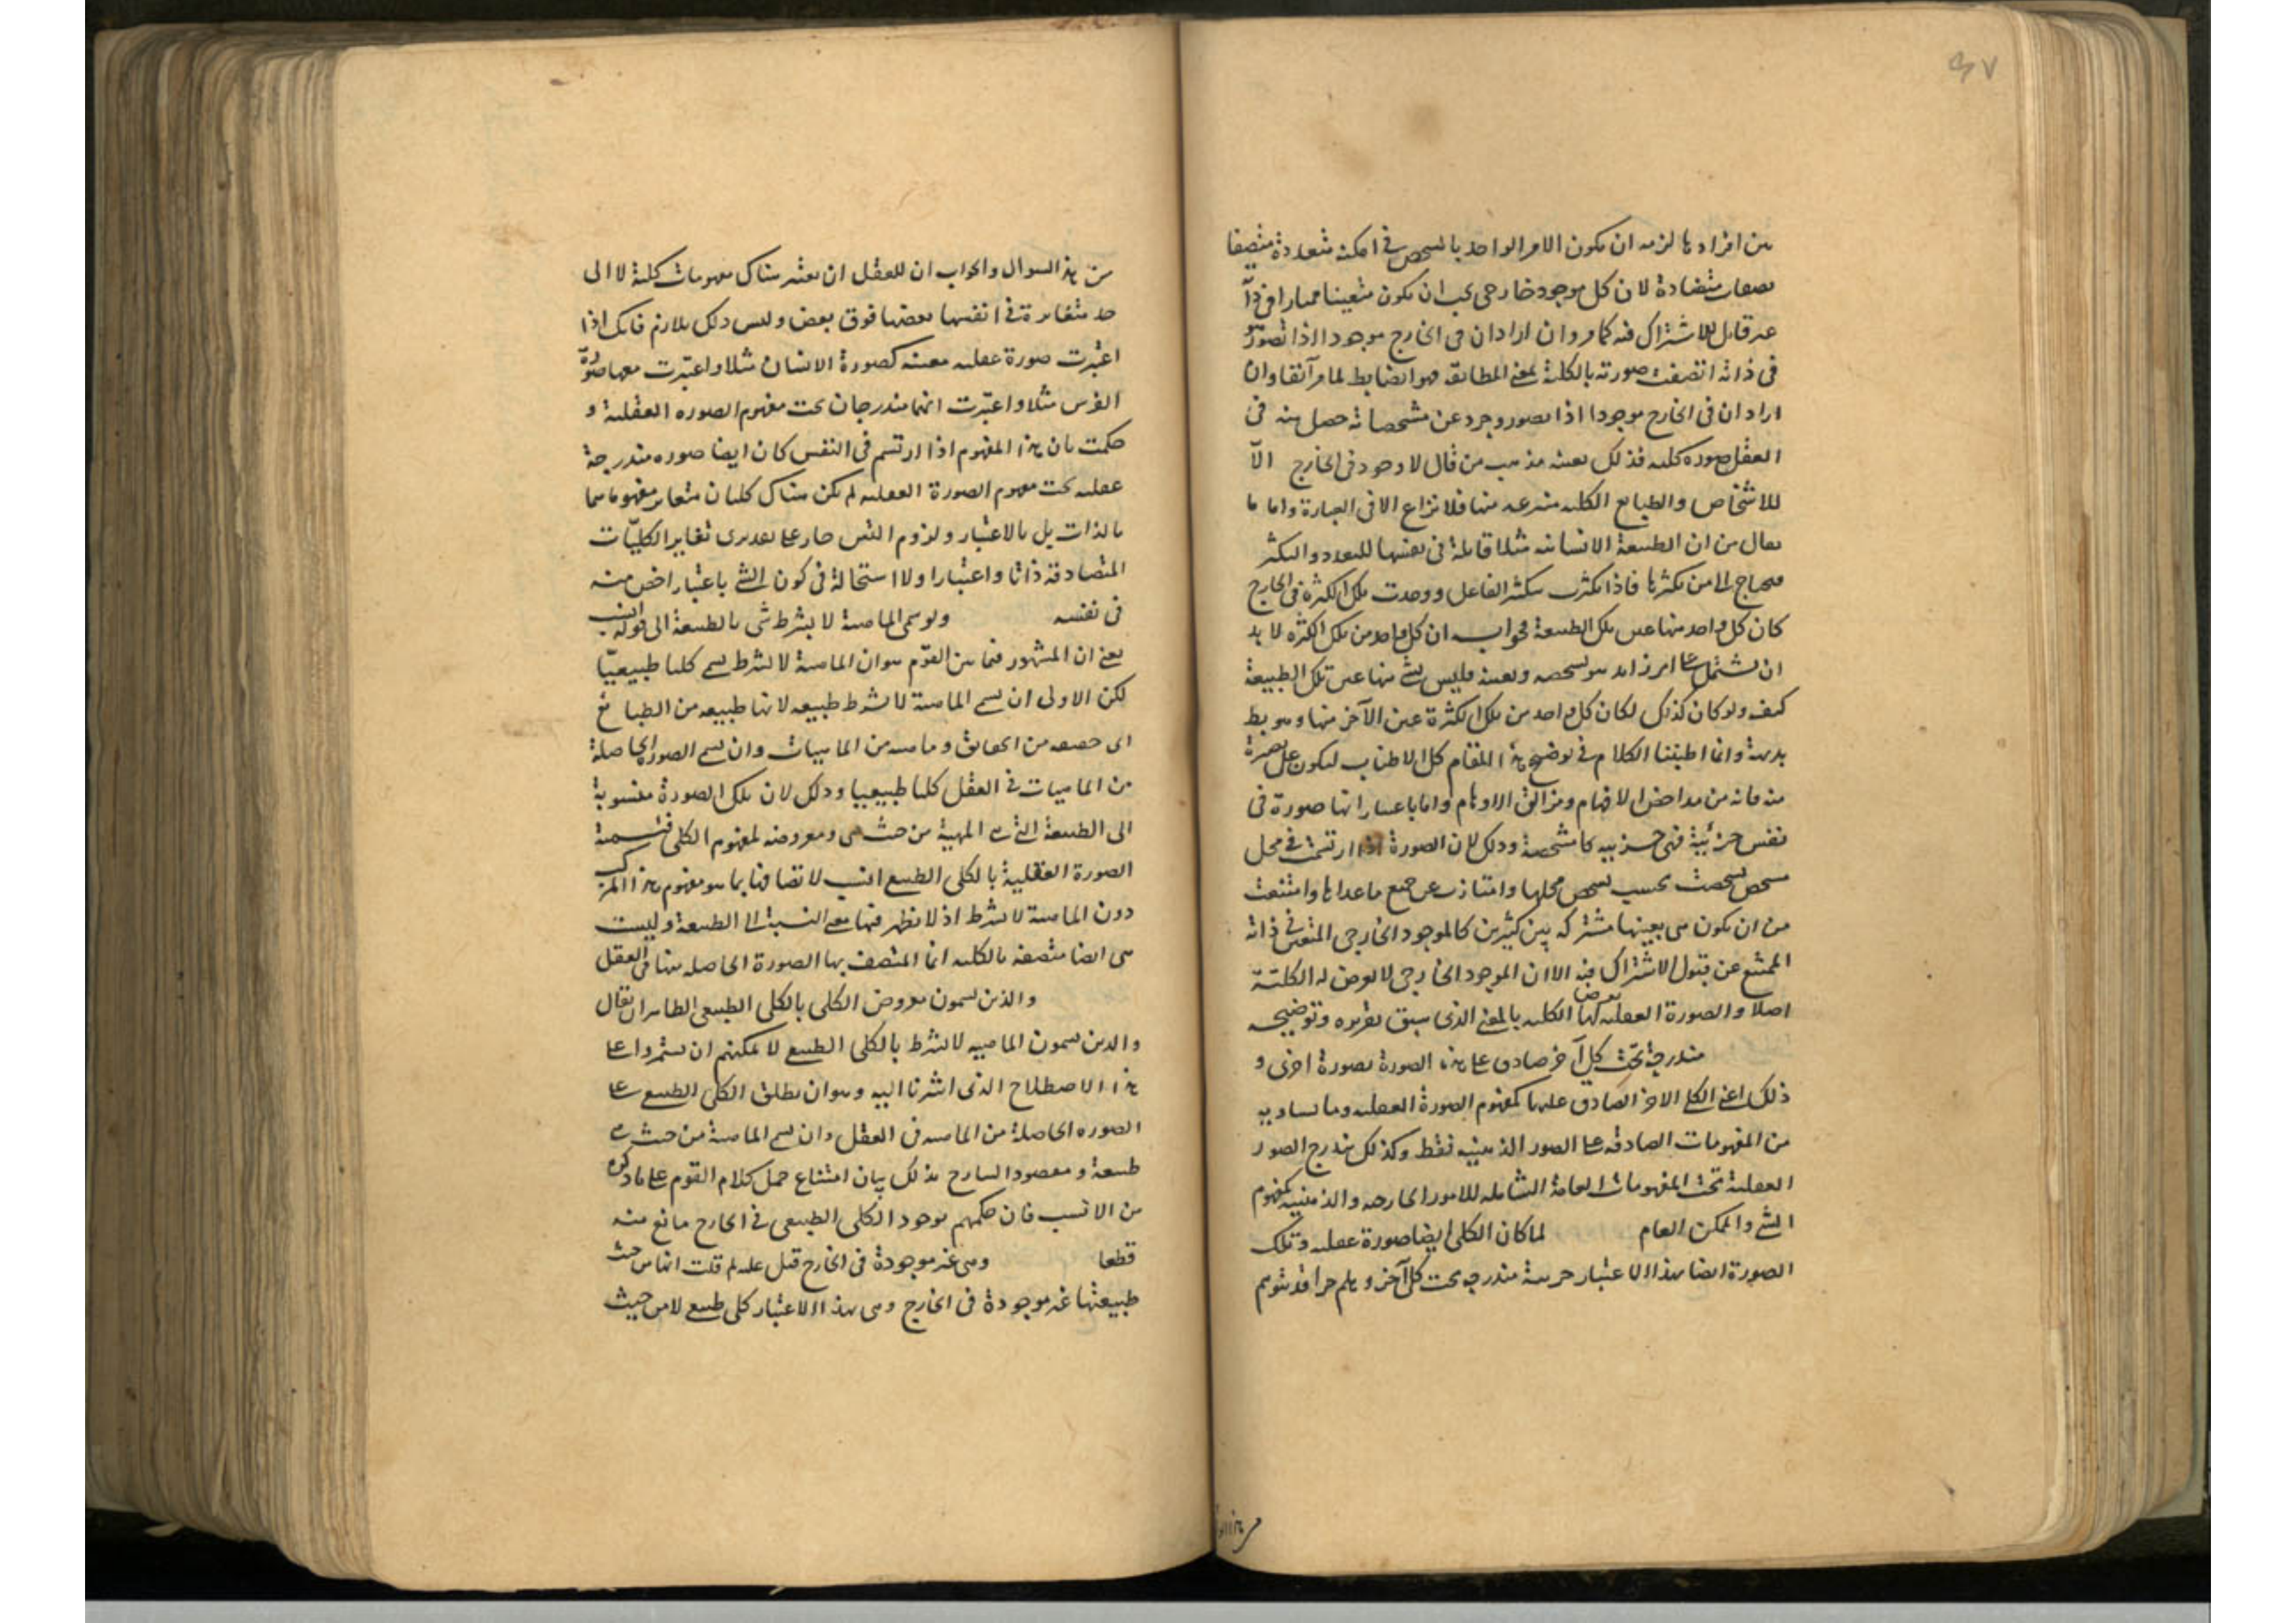 ٤٧
من افرادها لزمه ان يكون الامر الواحد بالشخص فى امكنة متعددة متصفا
بصفات متضادة لان كل موجود خارجى يجب ان يكون متعينا ممتازا فى ذاته
غير قابل للاشتراك فيه كما مر وان اراد ان فى الخارج موجودا اذا تصور
فى ذاته اتصفت صورته بالكلية بمعنى المطابقة فهو ايضا باطل لما مر آنفا وان
اراد ان فى الخارج موجودا اذا تصور وجرد عن مشخصاته حصل منه فى
العقل صورة كلية فذلك بعينه مذهب من قال لا وجود فى الخارج الا
للاشخاص والطبايع الكلية منتزعة منها فلا نزاع الا فى العبارة واما ما
يقال من ان الطبيعة الانسانية مثلا قابلة فى نفسها للتعدد والتكثر
فيحتاج الى من يكثرها فاذا تكثرت بتكثير الفاعل ووجدت تلك الكثرة فى الخارج
كان كل واحد منها عين تلك الطبيعة فجوابه ان كل واحد من تلك الكثرة لا بد
ان يشتمل على امر زايد هو تشخصه وتعينه فليس شئ منها عين تلك الطبيعة
كيف ولو كان كذلك لكان كل واحد من تلك الكثرة عين الآخر منها وهو بط
بديهة وانما اطنبنا الكلام فى توضيح هذا المقام كل الاطناب ليكون على بصيرة
منه فانه من مداحض الافهام ومزالق الاوهام واما باعتبار انها صورة فى
نفس جزئية فهى جزئية كالمشخصة وذلك لان الصورة اذا ارتسمت فى محل
مشخص تشخصت بحسب تشخص محلها وامتازت عن جميع ما عداها وامتنعت
من ان يكون هى بعينها مشتركة بين كثيرين كالموجود الخارجى المتعين فى ذاته
الممتنع عن قبول الاشتراك فيه الا ان الموجود الخارجى لا يعرض له الكلية
اصلا والصورة العقلية يعرض لها الكلية بالمعنى الذى سبق تقريره وتوضيحه
مندرجة تحت كلى آخر صادق على هذه الصورة بصورة اخرى و
ذلك اعنى الكلى الاخر الصادق عليها كمفهوم الصورة العقلية وما يساويه
من المفهومات الصادقة على الصور الذهنية فقط وكذلك يندرج الصور
العقلية تحت المفهومات العامة الشاملة للامور الخارجه والذهنية كمفهوم
الشئ والممكن العام لما كان الكلى ايضا صورة عقلية وتلك
الصورة ايضا بهذا الاعتبار جزئية مندرجة تحت كلى آخر وهلم جرا قد يتوهم
من هذا السوال والجواب ان للعقل ان يعتبر هناك مفهومات كلية لا الى
حد متغايرة فى انفسها بعضها فوق بعض وليس ذلك بلازم فانك اذا
اعتبرت صورة عقلية معينة كصورة الانسان مثلا واعتبرت معها صورة
الفرس مثلا واعتبرت انهما مندرجان تحت مفهوم الصورة العقلية و
حكمت بان هذا المفهوم اذا ارتسم فى النفس كان ايضا صورة مندرجة
عقلية تحت مفهوم الصورة العقلية لم يكن هناك كليان متغاير مفهوماهما
بالذات بل بالاعتبار ولزوم التس جار على تقديرى تغاير الكليّات
المتصادقة ذاتا واعتبارا ولا استحالة فى كون الشئ باعتبار اخص منه
فى نفسه ولو سمى الماهية لا بشرط شئ بالطبيعة الى قوله انسب
يعنى ان المشهور فيما بين القوم هو ان الماهية لا بشرط يسمى كليا طبيعيّا
لكن الاولى ان يسمى الماهية لا بشرط طبيعة لانها طبيعة من الطبايع
اى حقيقة من الحقايق وماهية من الماهيات وان يسمى الصور الحاصلة
من الماهيات فى العقل كليا طبيعيا وذلك لان تلك الصورة منسوبة
الى الطبيعة التى هى المهية من حيث هى ومعروضة لمفهوم الكلى فتسمية
الصورة العقلية بالكلى الطبيعى انسب لاتصافها بما هو مفهوم هذا المركب
دون الماهية لا بشرط اذ لا يظهر فيها معنى النسبة الى الطبيعة وليست
هى ايضا متصفة بالكلية انما المتصف بها الصورة الحاصلة منها فى العقل
والذين يسمون معروض الكلى بالكلى الطبيعى الظاهر ان يقال
والذين يسمون الماهية لا بشرط بالكلى الطبيعى لا يمكنهم ان يستمروا على
هذا الاصطلاح الذى اشرنا اليه وهو ان يطلق الكلى الطبيعى على
الصورة الحاصلة من الماهية فى العقل وان يسمى الماهية من حيث هى
طبيعة ومقصود الشارح بذلك بيان امتناع حمل كلام القوم على ما ذكره
من الانسب فان حكمهم بوجود الكلى الطبيعى فى الخارج مانع منه
قطعا وهى غير موجودة فى الخارج قيل عليه لم قلت انها من حيث
طبيعتها غير موجودة فى الخارج وهى بهذا الاعتبار كلى طبيعى لا من حيث